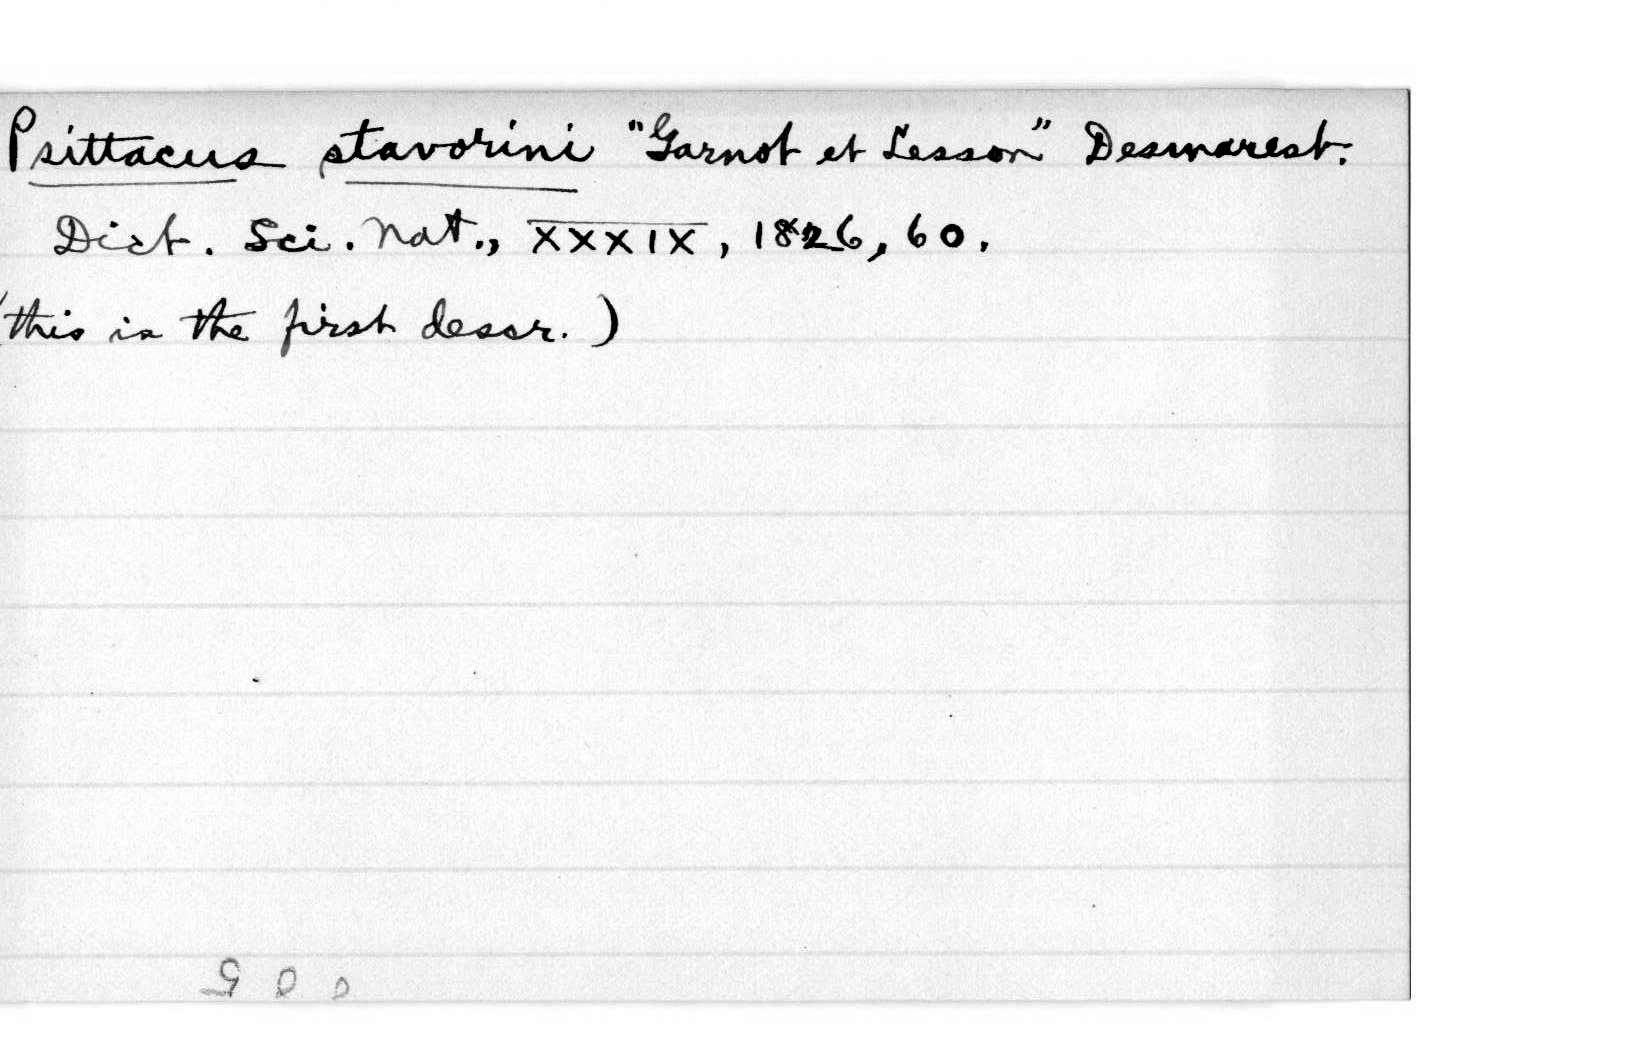 Psittacus stavorini "Garnot et Lesson" Desmarest.
Dict. Sci. Nat., XXXIX, 1826, 60.
(this is the first descr.)